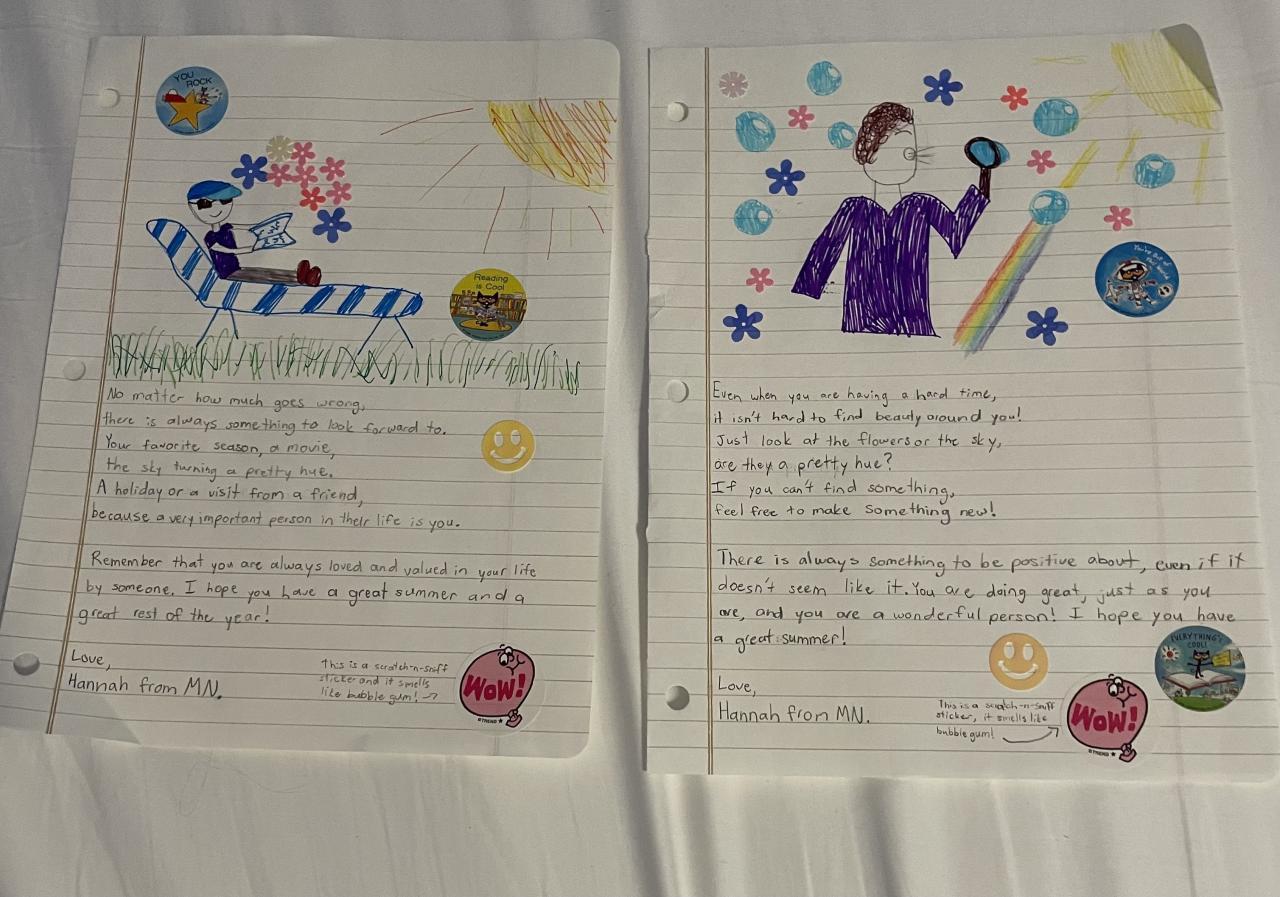 YOU
ROCK
Reading
is Cool
No matter how much goes wrong,
there is always something to look forward to.
Your favorite season, a movie,
the sky turning a pretty hue.
A holiday or a visit from a friend,
because a very important person in their life is you.
Remember that you are always loved and valued in your life
by someone. I hope you have a great summer and a
great rest of the year!
Love,
Hannah from MN.
This is a scratch-n-sniff
sticker and it smells
like bubble gum! →
WOW!
TREND
You're Out of
This World
Even when you are having a hard time,
it isn't hard to find beauty around you!
Just look at the flowers or the sky,
are they a pretty hue?
If you can't find something,
feel free to make something new!
There is always something to be positive about, even if it
doesn't seem like it. You are doing great, just as you
are, and you are a wonderful person! I hope you have
a great summer!
EVERYTHING'S
COOL!
Love,
Hannah from MN.
This is a scratch-n-sniff
sticker, it smells like
bubble gum!
WOW!
TREND